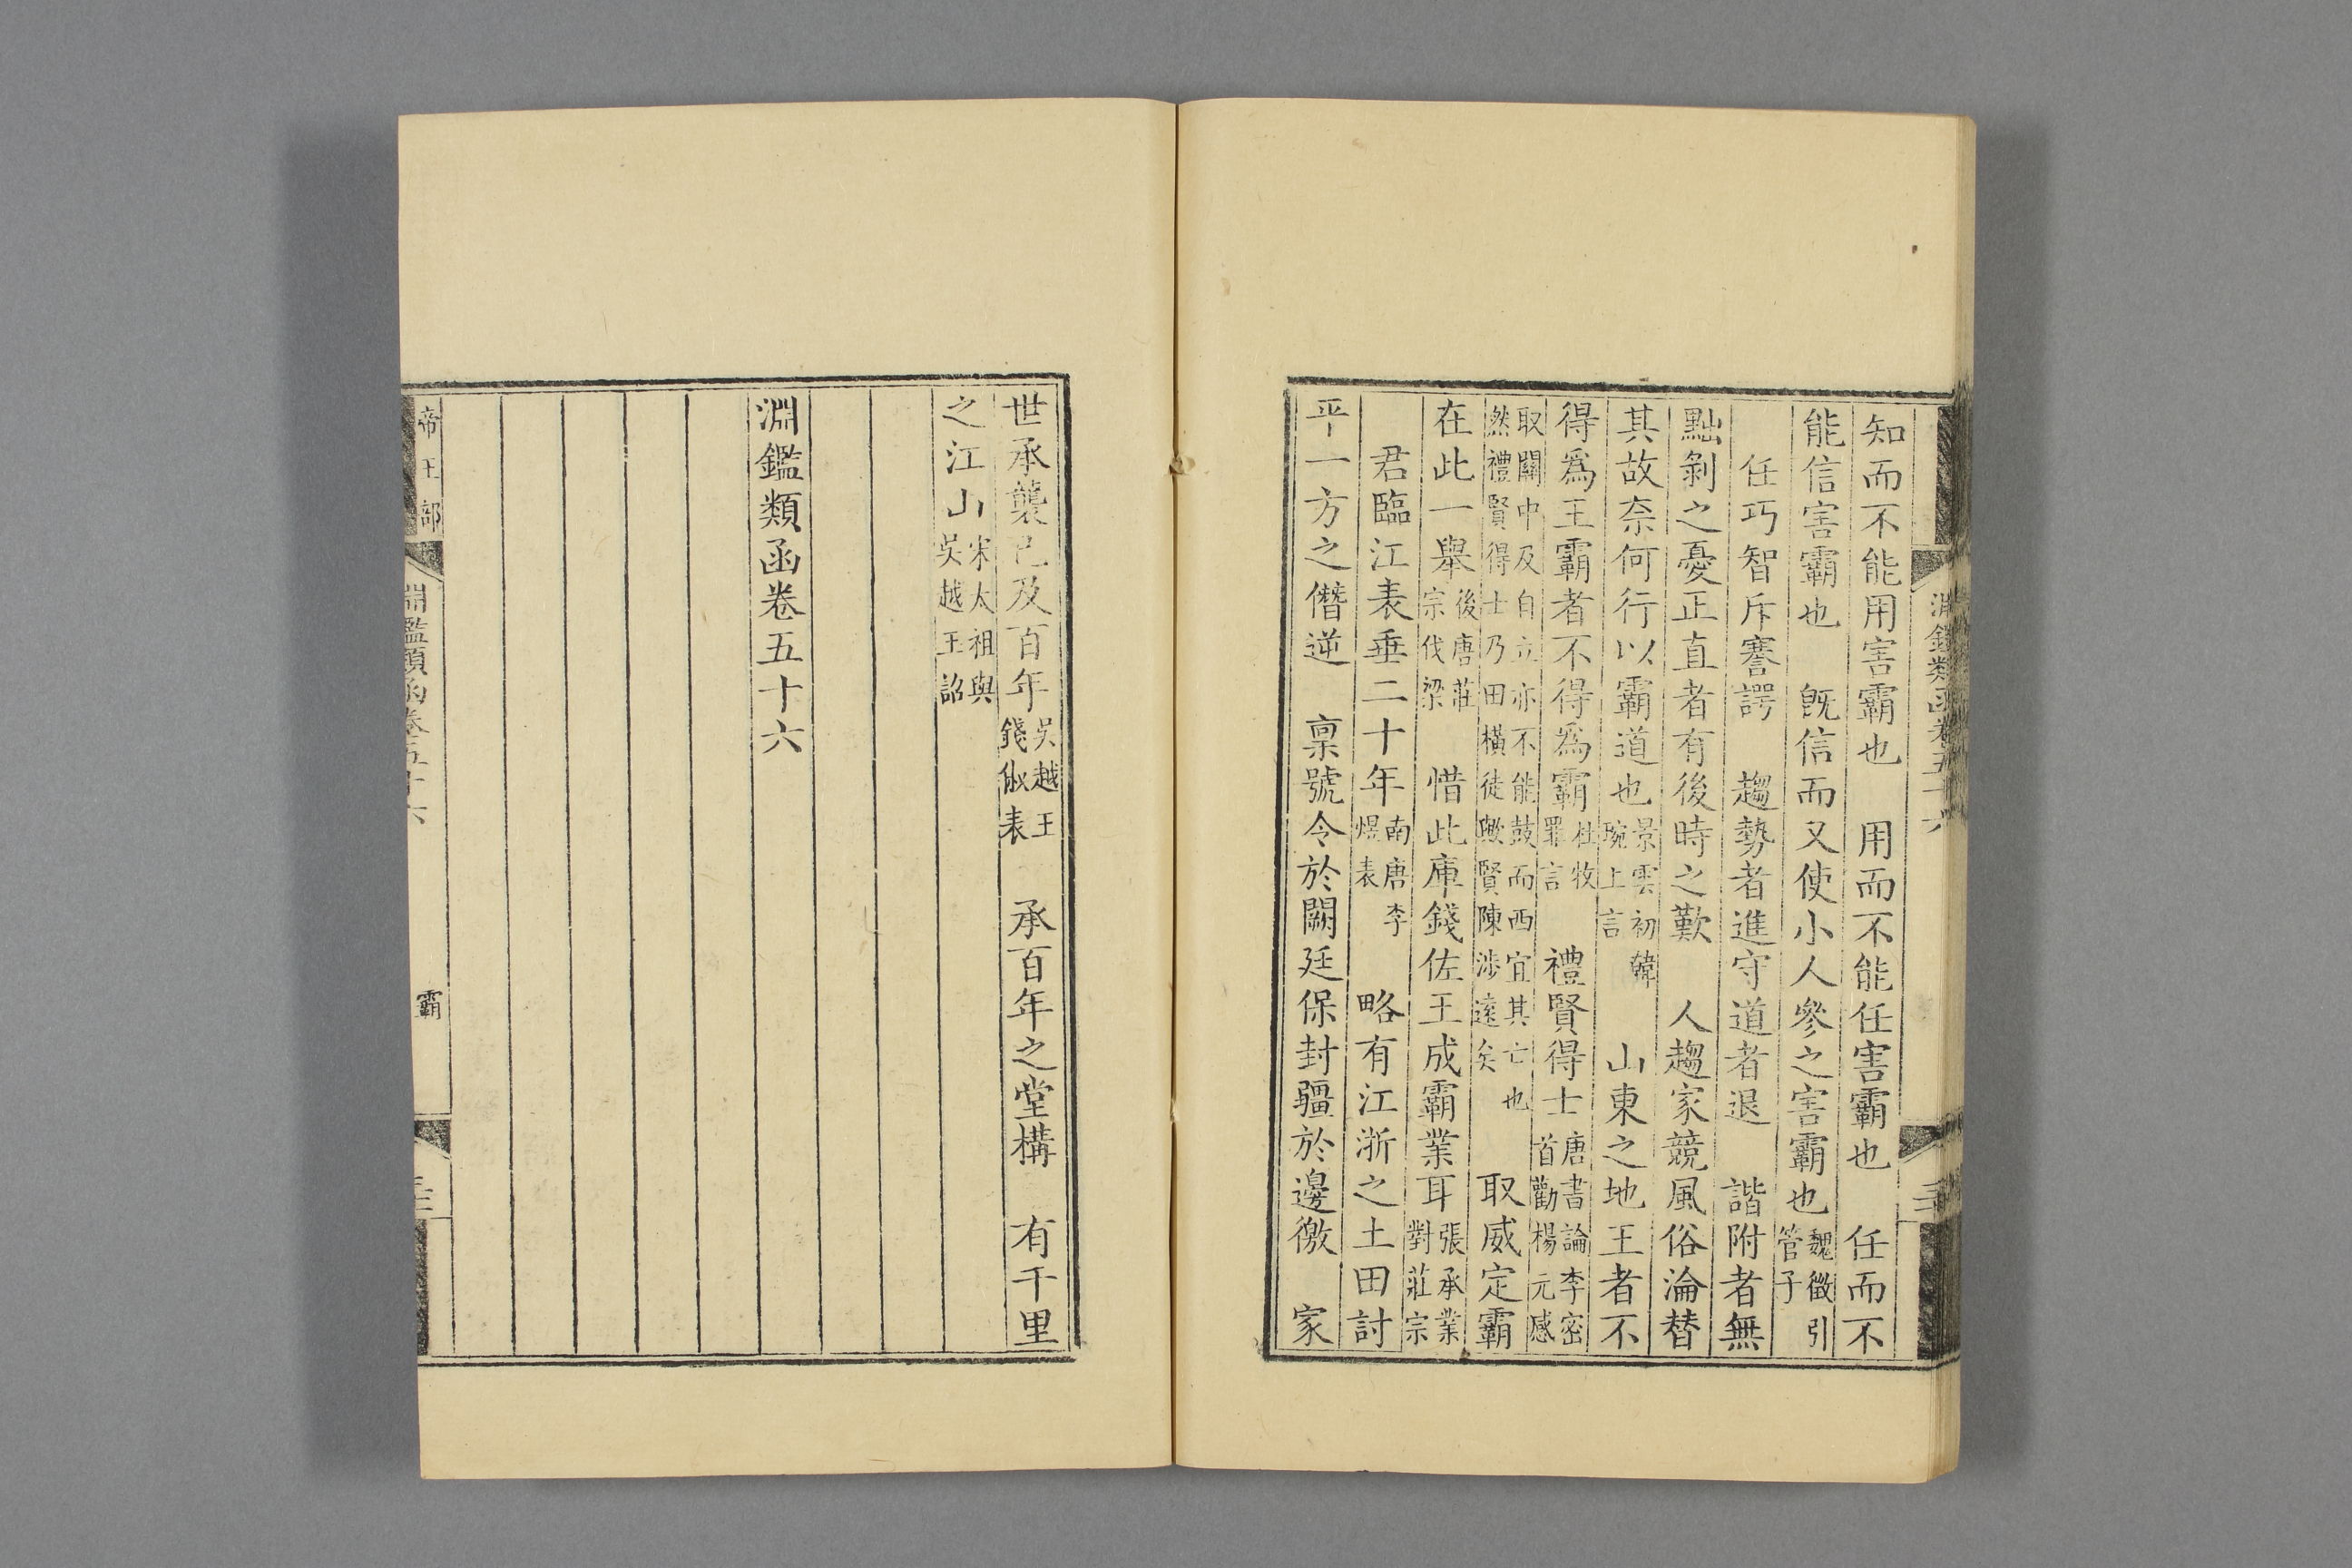 淵鑑類函卷五十六
知而不能用害霸也　用而不能任害霸也　任而不
能信害霸也　旣信而又使小人參之害霸也魏徵引管子
任巧智斥謇諤　趨勢者進守道者退　諧附者無
黜剝之憂正直者有後時之歎　人趨家競風俗淪替
其故奈何行以霸道也景雲初韓琬上言　山東之地王者不
得爲王霸者不得爲霸杜牧罪言　禮賢得士唐書論李密首勸楊元感
取關中及自立亦不能鼓而西宜其亡也然禮賢得士乃田橫徒歟賢陳涉遠矣　取威定霸
在此一舉後唐莊宗伐梁　惜此庫錢佐王成霸業耳張承業對莊宗
君臨江表垂二十年南唐李煜表　略有江浙之土田討
平一方之僭逆　稟號令於闕廷保封疆於邊徼　家
世承襲已及百年吳越王錢俶表　承百年之堂構　有千里
之江山宋太祖與吳越王詔
淵鑑類函卷五十六
帝王部
淵鑑類函卷五十六
霸